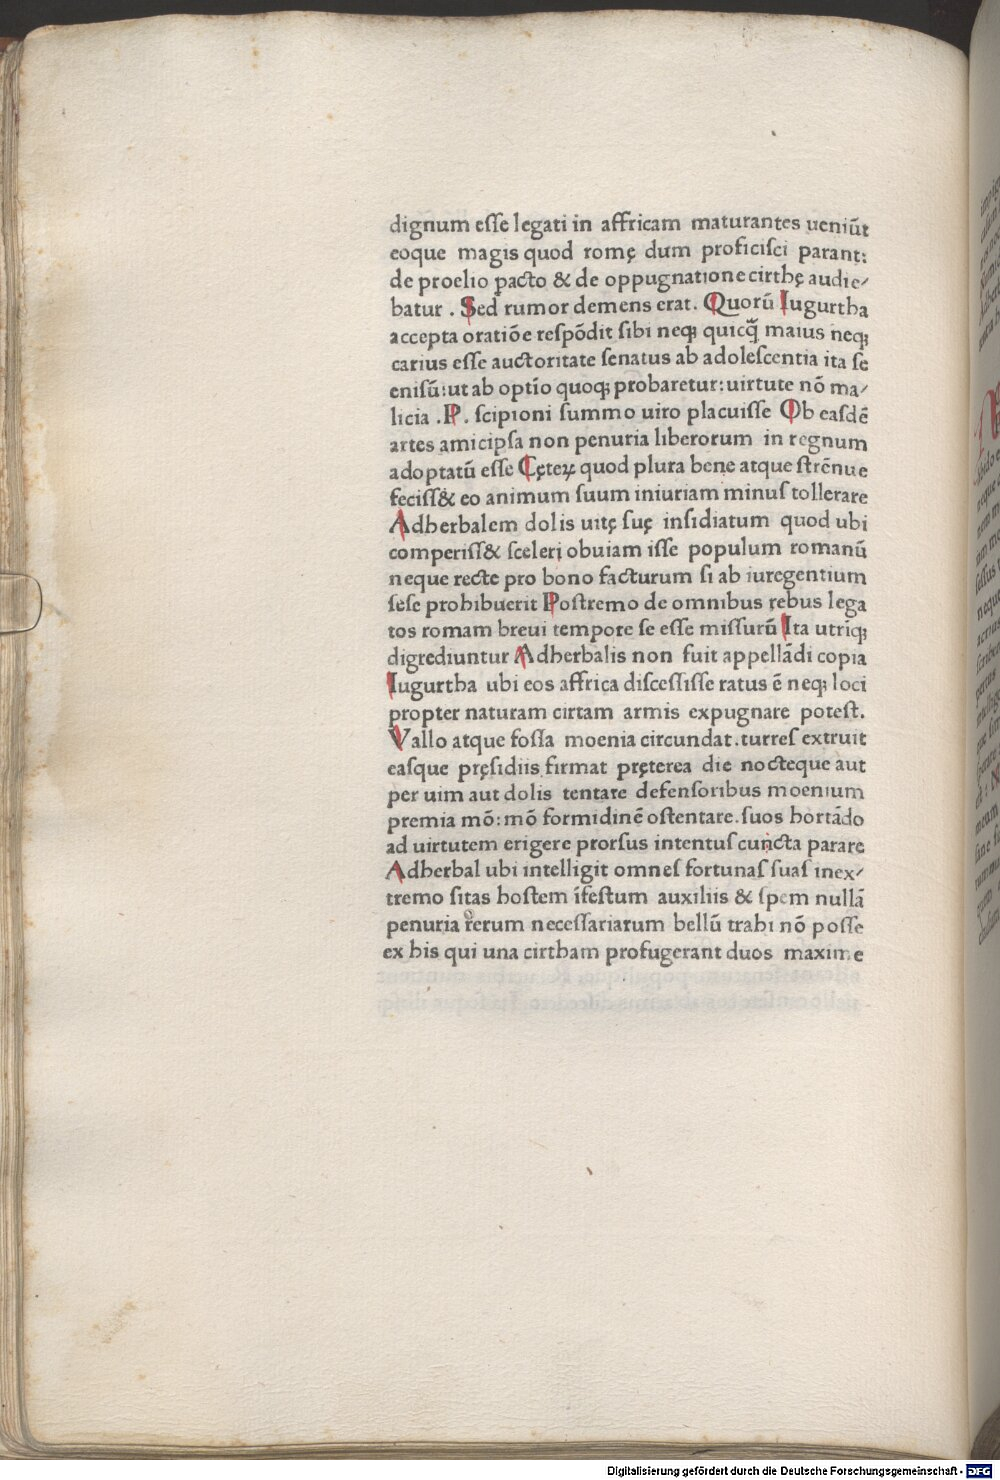 dignum eſſe legati in affricam maturantes ueniūt
eoque magis quod romę dum proficiſci parant:
de proelio pacto & de oppugnatione cirthę audie⸗
batur . Sed rumor demens erat. Quorū Iugurtha
accepta oratiōe reſpōdit ſibi neqꝫ quicq̃ maius neqꝫ
carius eſſe auctoritate ſenatus ab adoleſcentia ita ſe
eniſū:ut ab optīo quoqꝫ probaretur:uirtute nō ma⸗
licia .P. ſcipioni ſummo uiro placuiſſe Ob eaſdē
artes amicipſa non penuria liberorum in regnum
adoptatū eſſe Cęteꝝ quod plura bene atque ſtrēnue
feciſſ& eo animum ſuum iniuriam minuſ tollerare
Adherbalem dolis uitę ſuę inſidiatum quod ubi
comperiſſ& ſceleri obuiam iſſe populum romanū
neque recte pro bono facturum ſi ab iuregentium
ſeſe prohibuerit Poſtremo de omnibus rebus lega
tos romam breui tempore ſe eſſe miſſurū Ita utriqꝫ
digrediuntur Adherbalis non fuit appellādi copia
Iugurtha ubi eos affrica diſceſſiſſe ratus ē neqꝫ loci
propter naturam cirtam armis expugnare poteſt.
Vallo atque foſſa moenia circundat.turreſ extruit
eaſque pręſidiis firmat pręterea die nocteque aut
per uim aut dolis tentare defenſoribus moenium
premia mō:mō formidinē oſtentare.ſuos hortādo
ad uirtutem erigere prorſus intentuſ cuncta parare
Adherbal ubi intelligit omneſ fortunaſ ſuaſ inex⸗
tremo ſitas hoſtem īfeſtum auxiliis & ſpem nullā
penuria rerum neceſſariarum bellū trahi nō poſſe
ex his qui una cirtham profugerant duos maxime
Digitalisierung gefördert durch die Deutsche Forschungsgemeinschaft - DFG